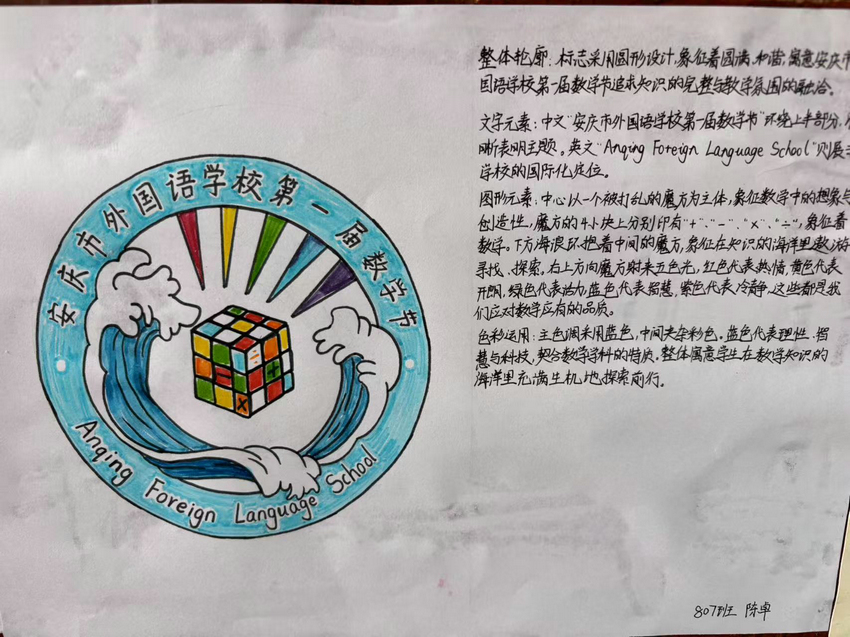 安庆市外国语学校第一届数学节
Anqing Foreign Language School
÷
+
−
×
整体轮廓:标志采用圆形设计,象征着圆满、和谐,寓意安庆市
国语学校第一届数学节追求知识的完整与数学氛围的融洽。
文字元素:中文“安庆市外国语学校第一届数学节”环绕上半部分,
晰表明主题。英文“Anqing Foreign Language School”则展
学校的国际化定位。
图形元素:中心以一个被打乱的魔方为主体,象征数学中的想象与
创造性,魔方的4小块上分别印有“+”、“-”、“×”、“÷”,象征着
数学。下方海浪环抱着中间的魔方,象征在知识的海洋里遨游
寻找、探索。右上方向魔方射来五色光,红色代表热情,黄色代表
开朗,绿色代表活力,蓝色代表智慧,紫色代表冷静,这些都是我
们应对数学应有的品质。
色彩运用:主色调采用蓝色,中间夹杂彩色。蓝色代表理性、智
慧与科技,契合数学学科的特质。整体寓意学生在数学知识的
海洋里充满生机地探索前行。
807班 陈卓